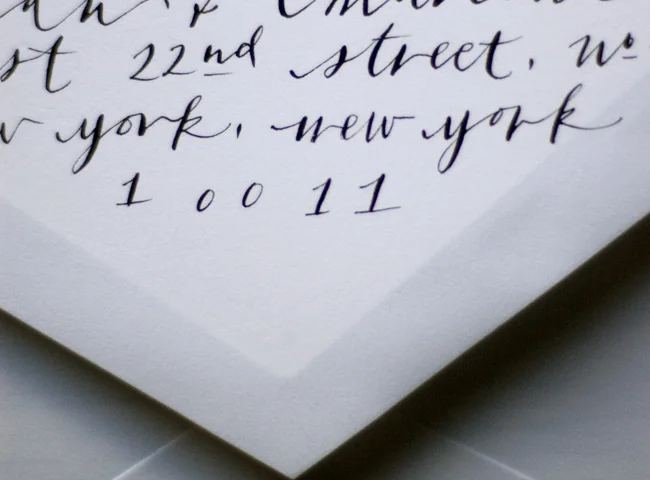 st 22nd street, no
york, new york
10011